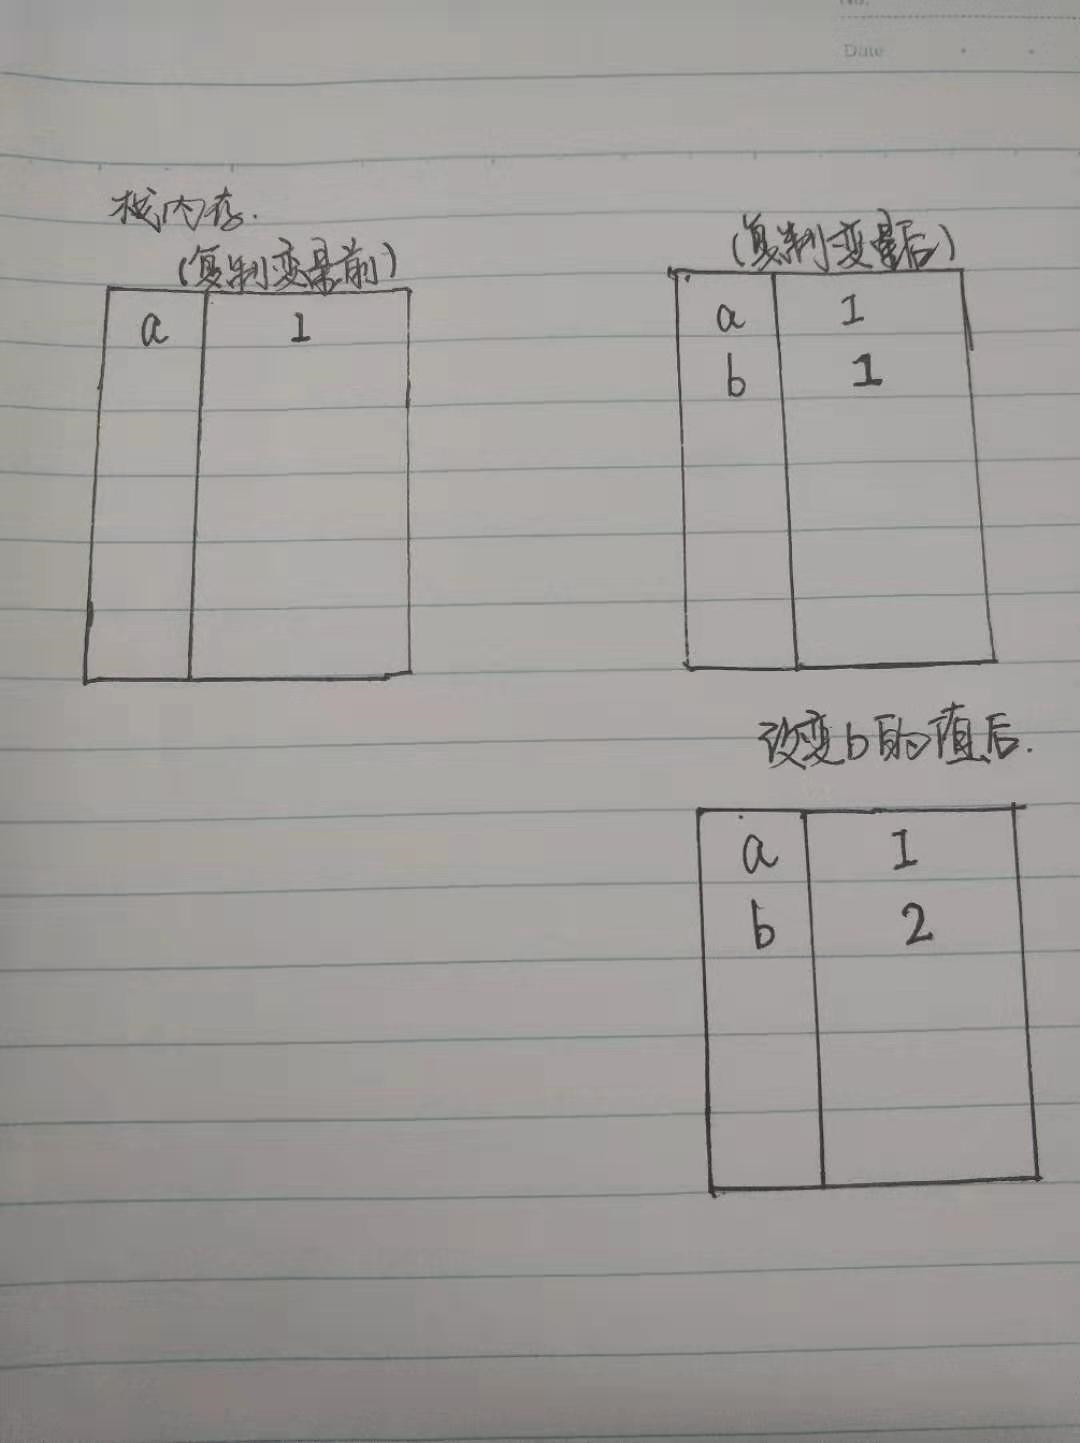 No.
Date
栈内存.
(复制变量前)
a 1
(复制变量后)
a 1
b 1
改变b的值后.
a 1
b 2